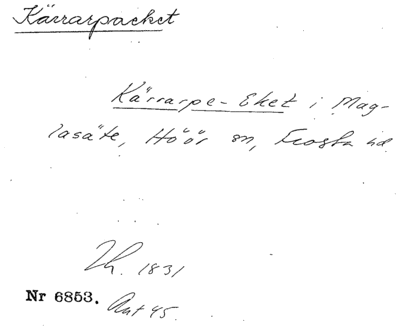 Kärrarpaeket
Kärrarpe-Eket i Mag-
lasäte, Höör sn, Frosta hd
Th. 1831
Nr 6853. Ant 45.